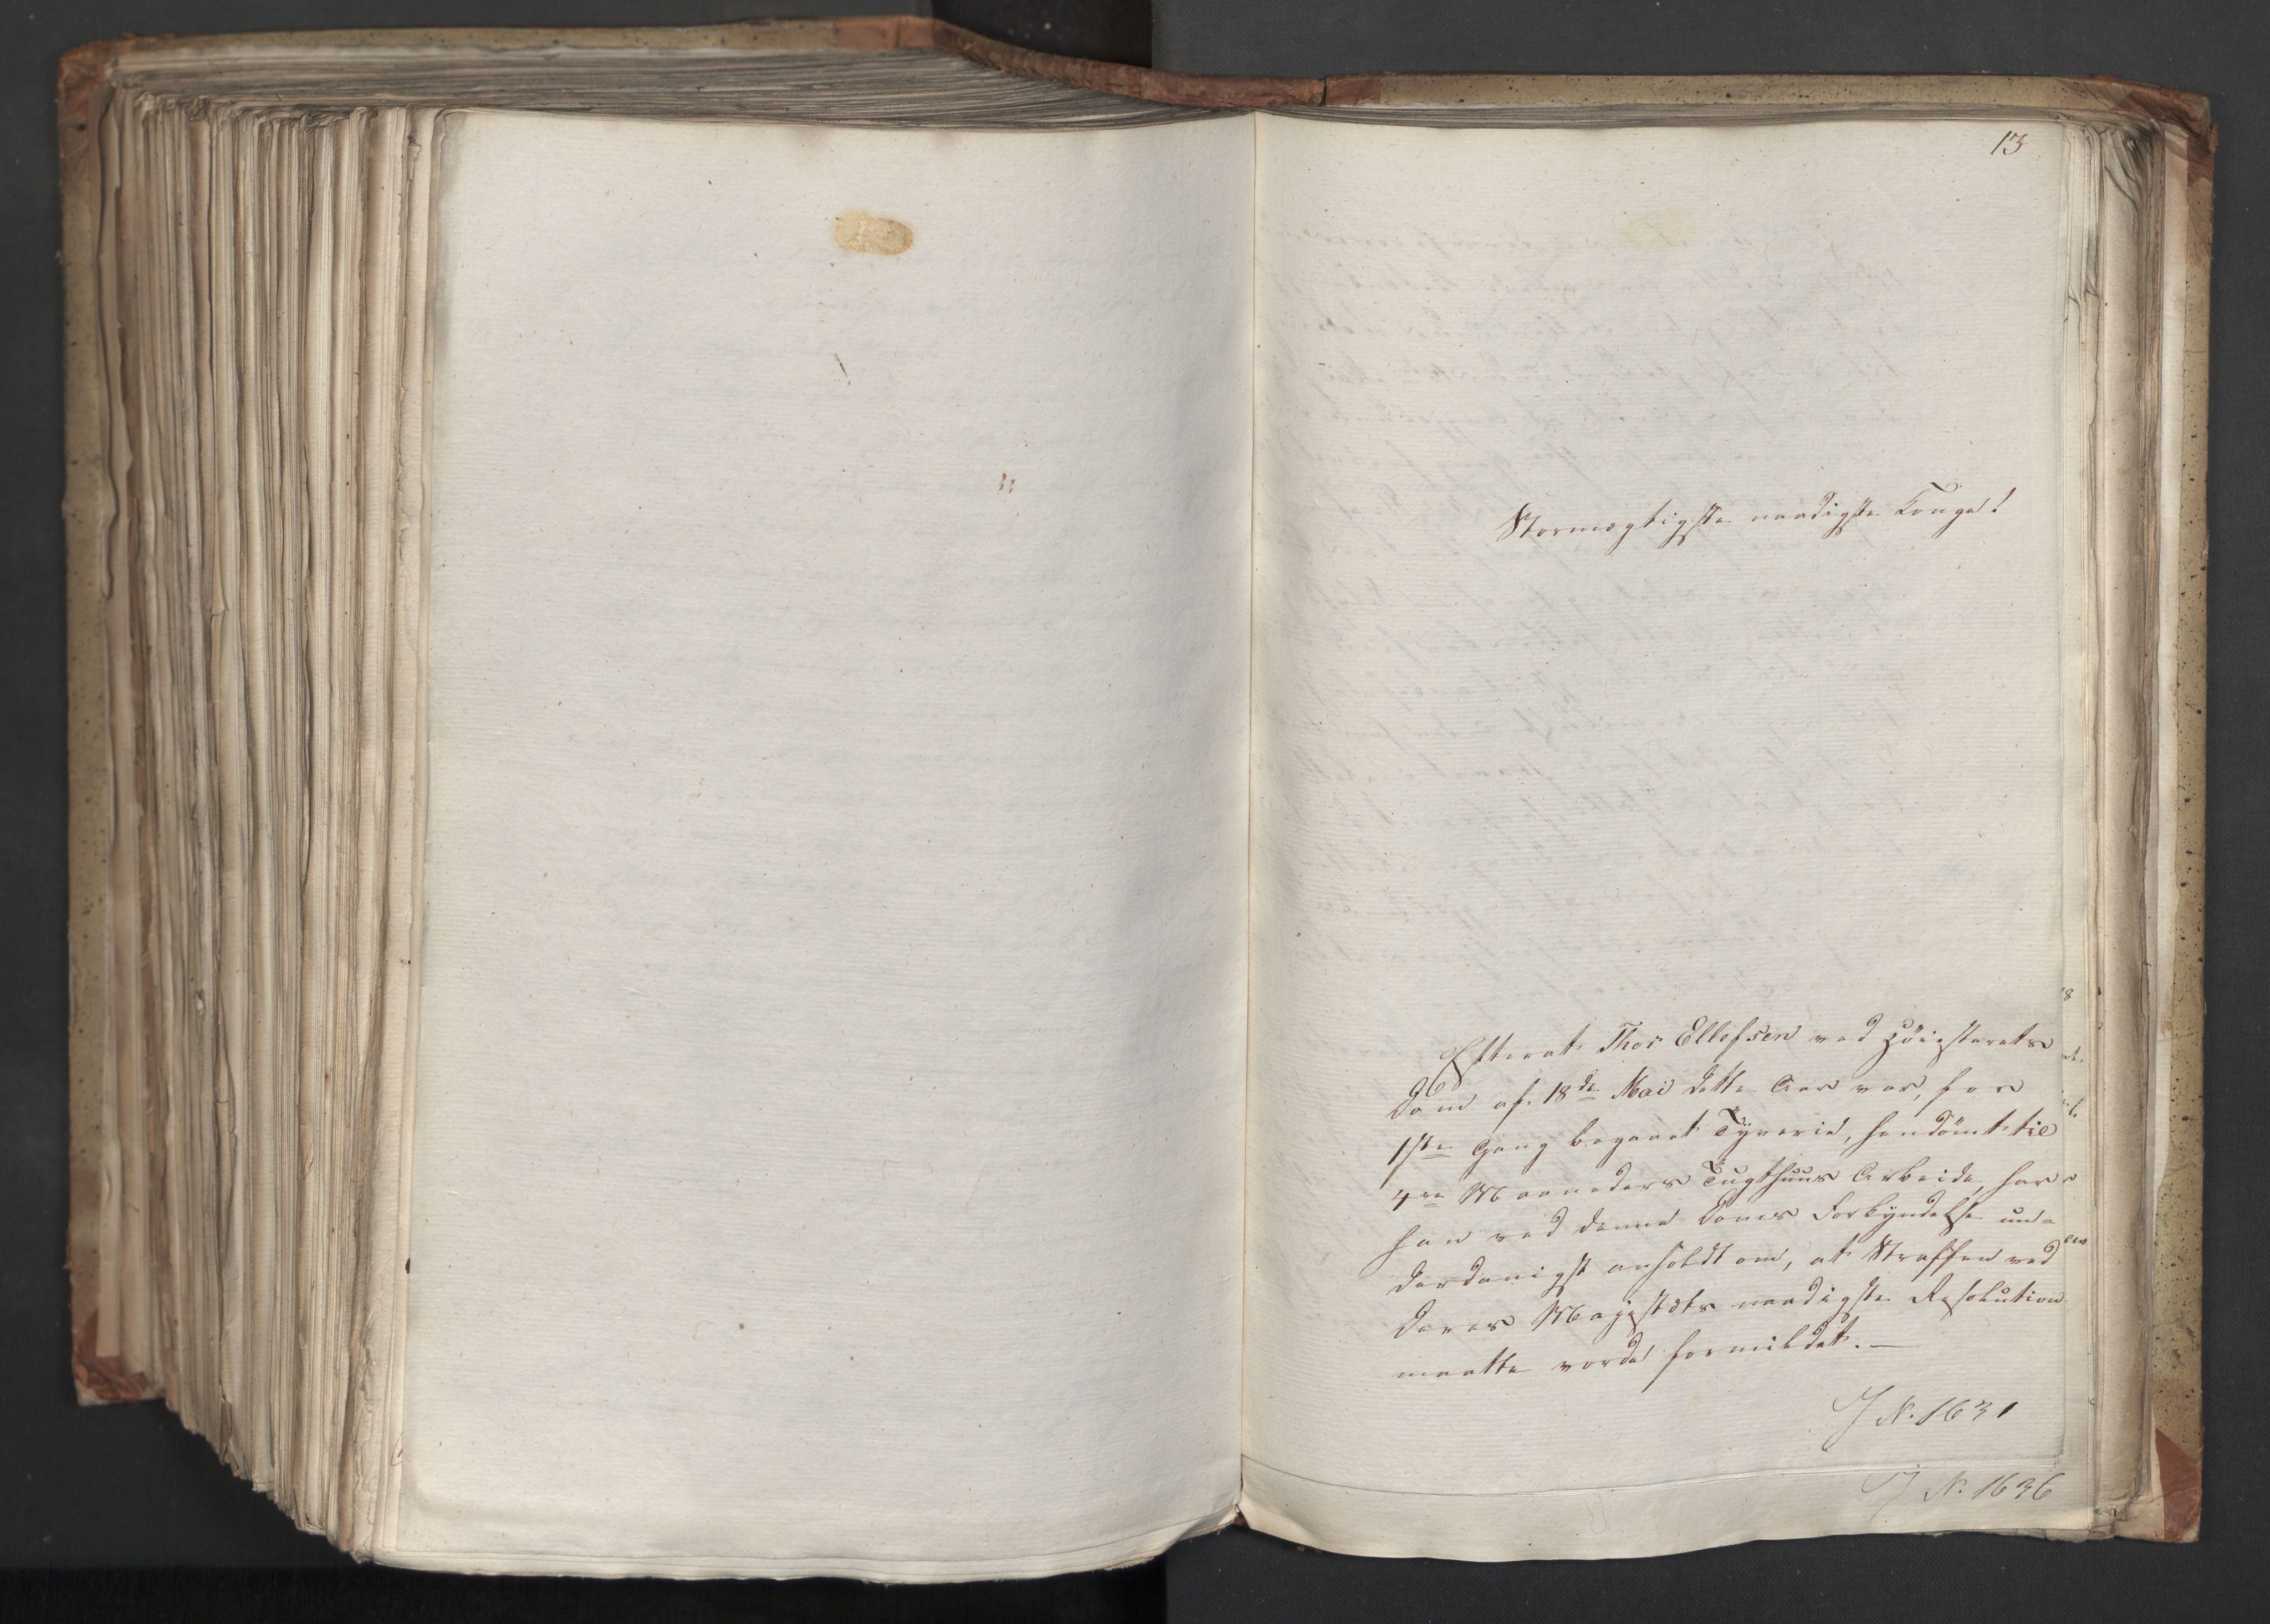 13
Stormægtigste naadigste Konge!
Efterat Thor Ellefsen ved Höiesterets
Dom af 18de Mai dette Aar var, for
1ste Gang begaaet Tyverie, hendömt til
4re Maaneders Tugthuus Arbeide, har
han ved denne Doms Forkyndelse un=
derdanigst anholdt om, at Straffen ved
Deres Majestæts naadigste Resolution
maatte vorde formildet. —
J N. 1631
J N. 1636